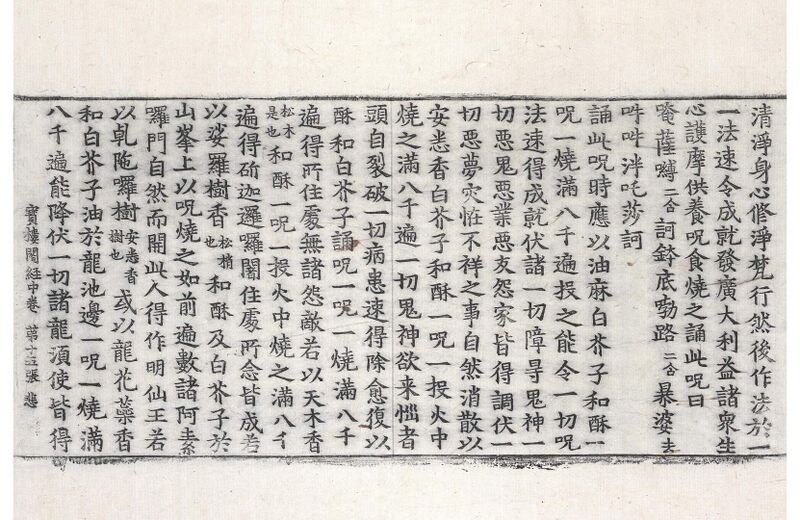 清淨身心修淨梵行然後作法於一
一法速令成就發廣大利益諸衆生
心護摩供養呪食燒之誦此呪曰
唵薩嚩二合訶鉢底勃路二合暴婆去
吽吽泮吒莎訶
誦此呪時應以油麻白芥子和酥一
呪一燒滿八千遍投之能令一切呪
法速得成就伏諸一切障㝵鬼神一
切惡鬼惡業惡友怨家皆得調伏一
切惡夢灾恠不祥之事自然消散以
安悉香白芥子和酥一呪一投火中
燒之滿八千遍一切鬼神欲来惱者
頭自裂破一切病患速得除愈復以
酥和白芥子誦呪一呪一燒滿八千
遍得所住處無諸怨敵若以天木香
松木是也和酥一呪一投火中燒之滿八千
遍得斫迦邏囉闍住處所念皆成若
以娑羅樹香松梢也和酥及白芥子於
山峯上以呪燒之如前遍數諸阿素
囉門自然而開此人得作明仙王若
以乹陁囉樹安悉香樹也或以龍花蘂香
和白芥子油於龍池邊一呪一燒滿
八千遍能降伏一切諸龍湏使皆得
寶樓閣経中卷 苐十五張 悲